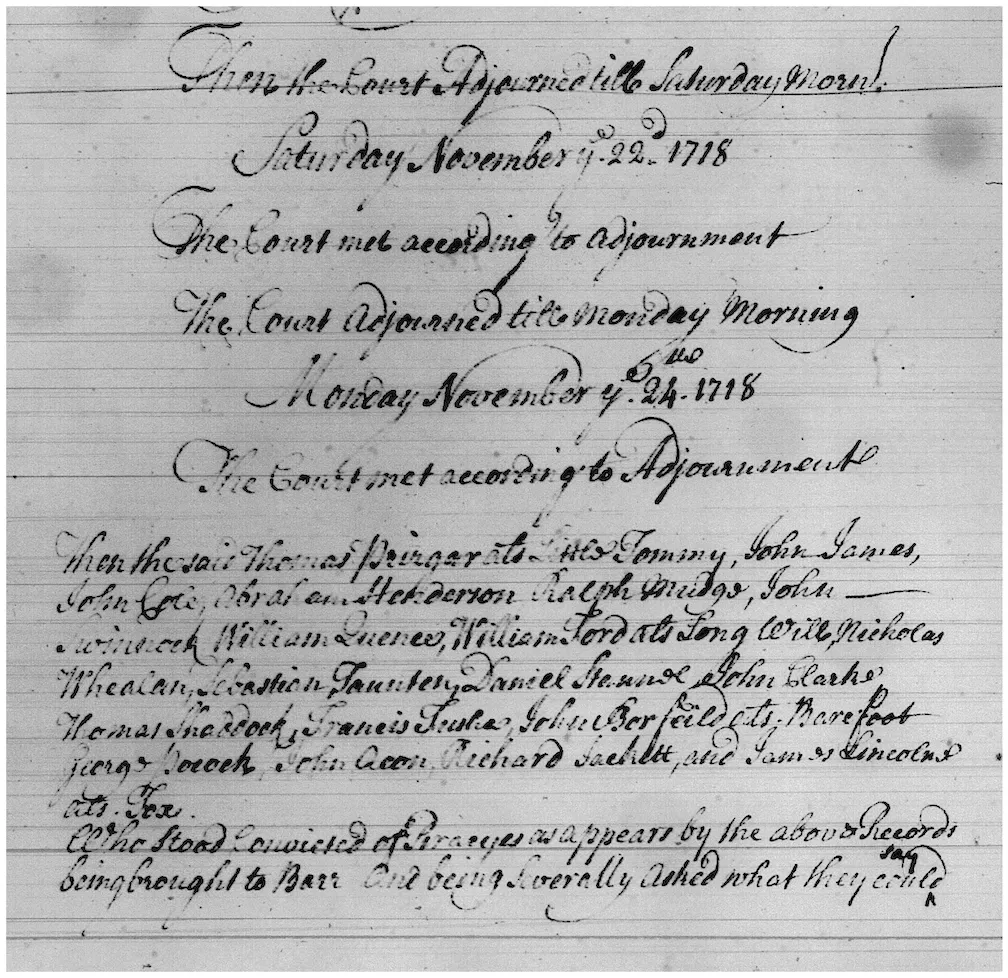 Then the Court Adjourned till Saturday Morn!
Saturday November ye. 22d. 1718
The Court met according to adjournment
The Court Adjourned till Monday Morning
Monday November ye. 24th. 1718
The Court met according to Adjournment
Then the said Thomas als Little Tommy, John James,
John Cole, Abraham Henderson Ralph Mudge, John —
William Quence, William Ford als Long Will, Nicholas
Whealan, Sebastion, Taunten, Daniel John Clarke
Thomas Shaddock, Francis John Borfeild als. Barefoot
George Pocock, John Acon, Richard Sackett, and James Lincolne
als. Fox.
Who stood Convicted of Piraeyes as appears by the above Records
being brought to Barr And being Severally Asked what they could say